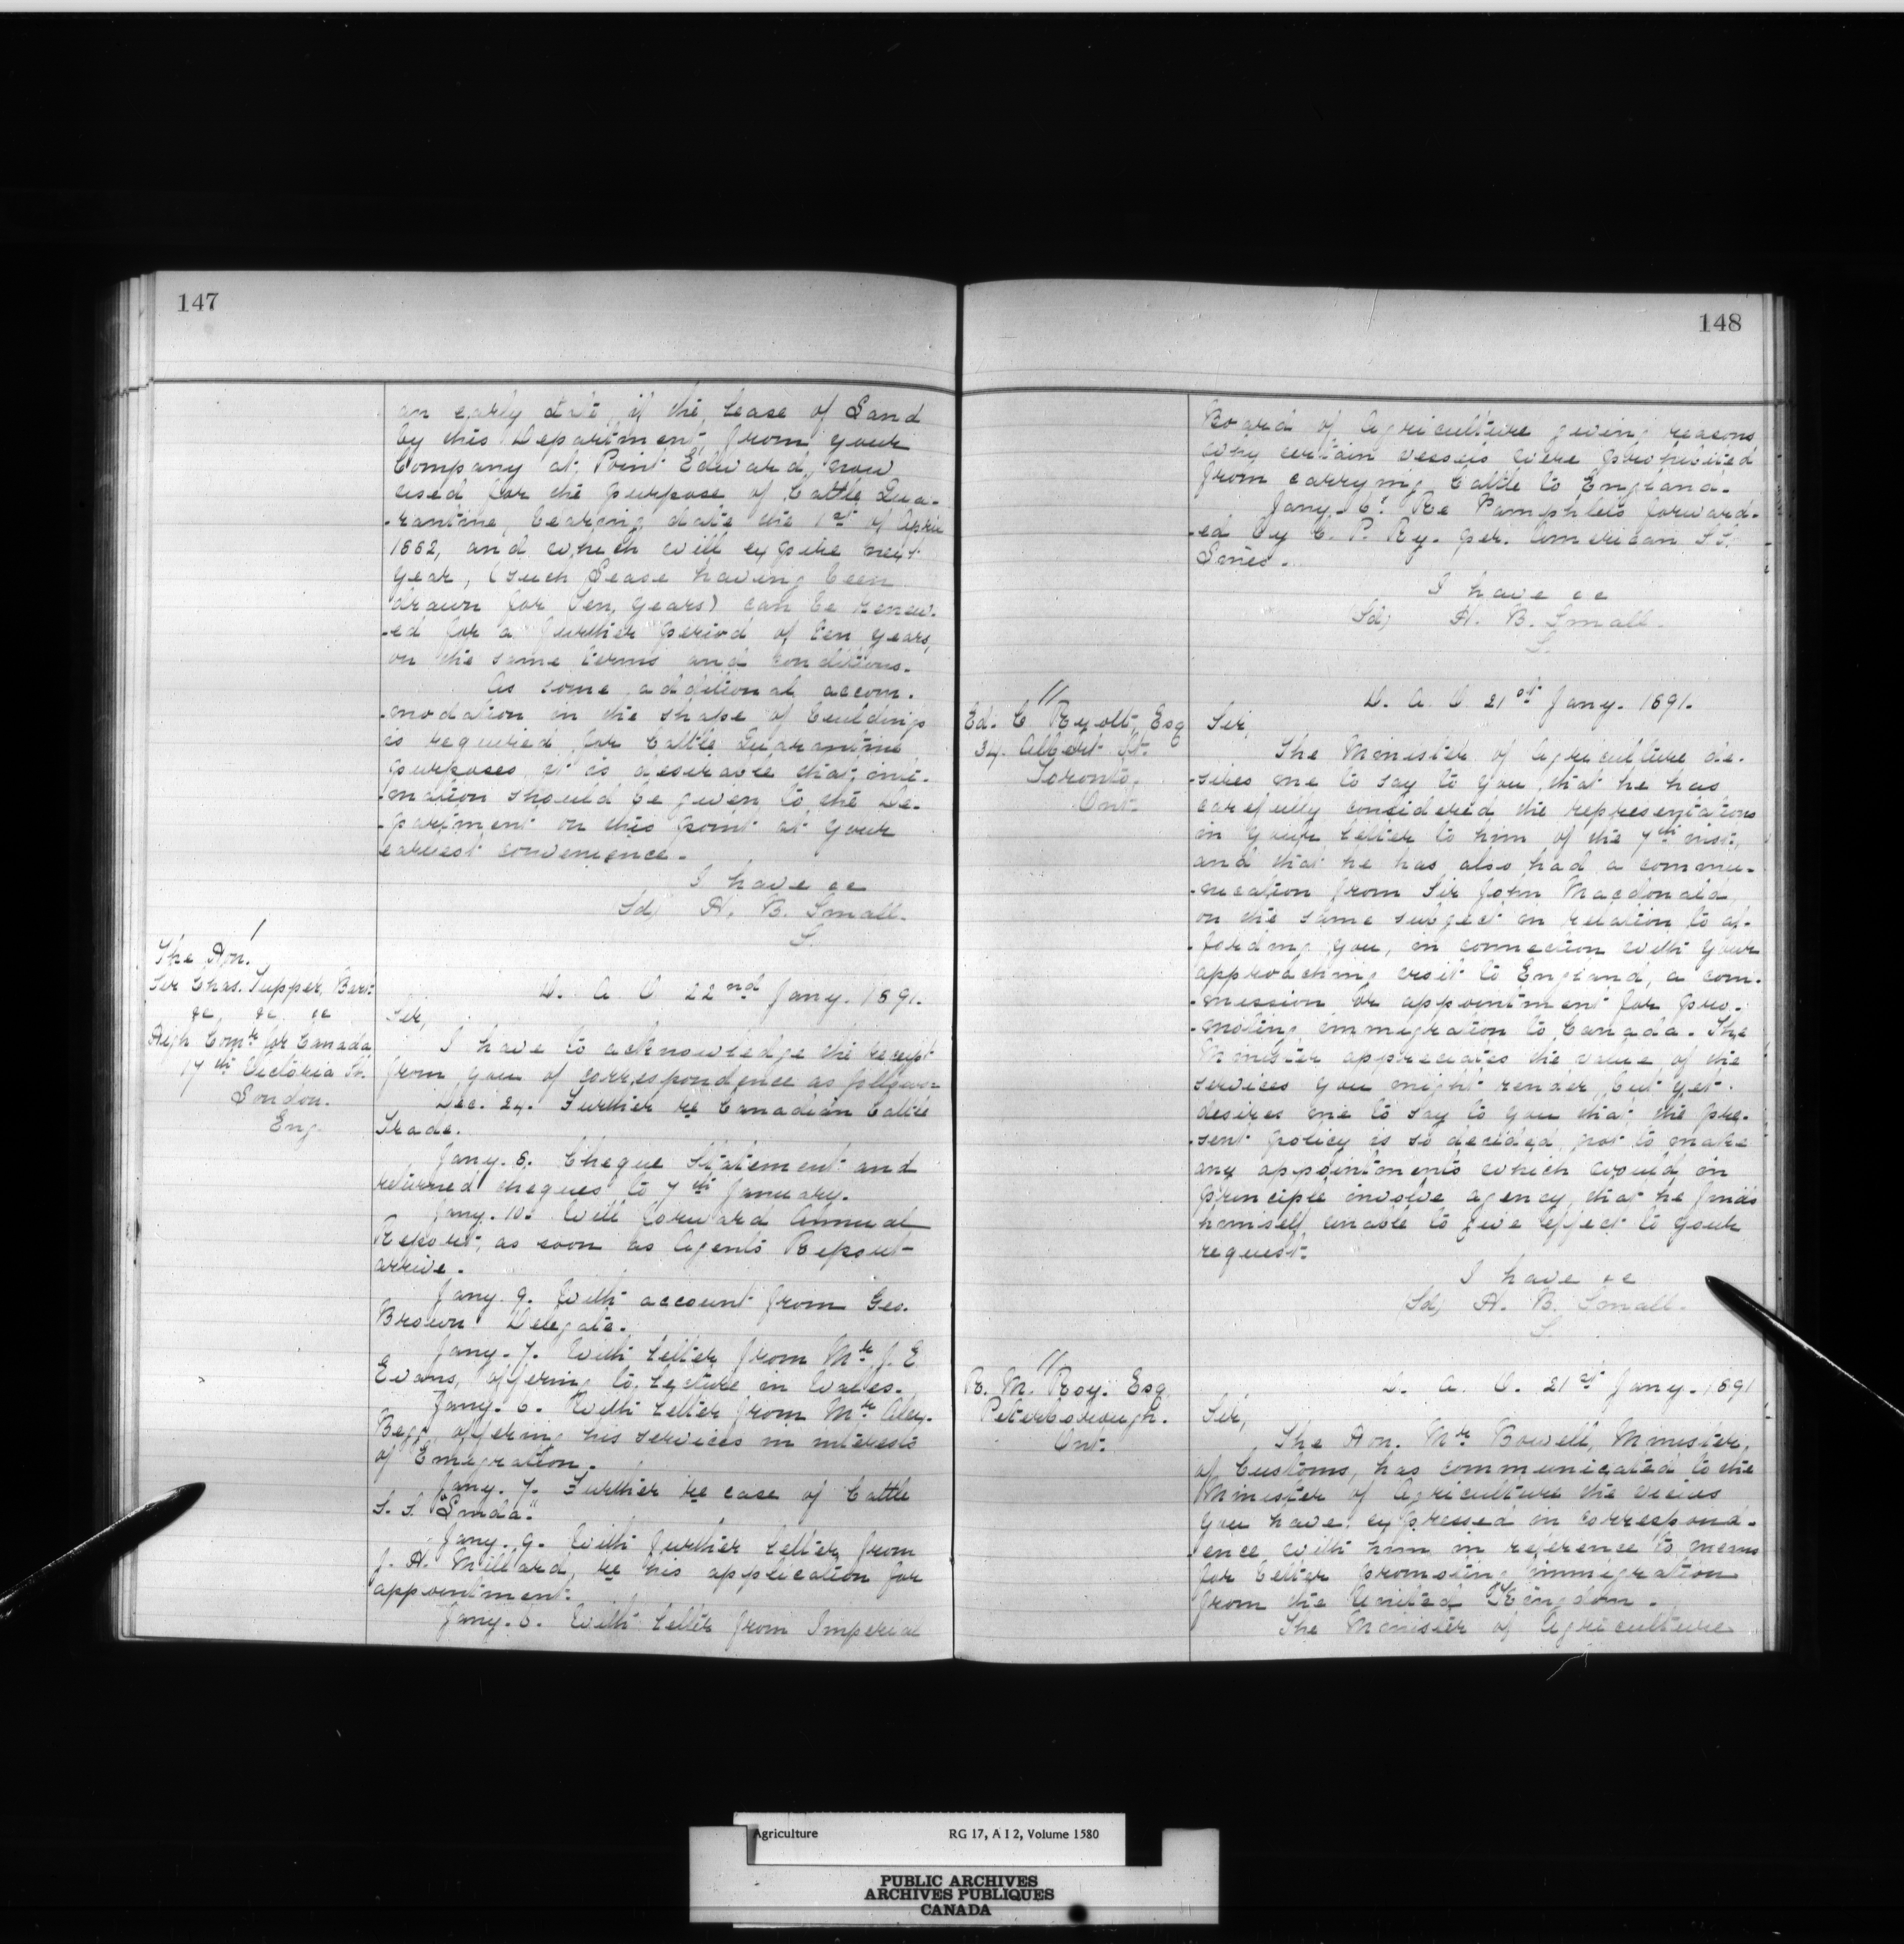 147
an early date, if the Lease of Land
by this Department, from your
Company at Point Edward, now
used for the purpose of Cattle Qua-
-rantine, bearing date the 1st of April
1882, and which will expire next
year, (such Lease having been
drawn for ten years) can be renew-
-ed for a further period of ten years,
on the same terms and conditions.
As some additional accom-
-modation in the shape of buildings
is required for Cattle Quarantine
purposes it is desirable that inti-
-mation should be given to the De-
-partment on this point at your
earliest convenience.
I have &c
Sd, H. B. Small.
S.
/
The Hon.
Sir Chas. Tupper, Bart.
&c, &c. &c
High Comr for Canada
17th Victoria St.
London.
Eng.
D. A. O 22nd Jany. 1891.
Sir,
I have to acknowledge the receipt
from you of correspondence as follows:
Dec. 24. Further re Canadian Cattle
Trade.
Jany. 8. Cheque Statement and
returned cheques to 7th January.
Jany. 10. Will forward Annual
Report, as soon as Agents Report
arrive.
Jany. 9. With account from Geo.
Brown Delegate.
Jany. 7. With Letter from Mr J. E
Evans, offering to Lecture in Wales.
Jany. 6. With Letter from Mr Alex.
Begg, offering his services in interests
of Emigration.
Jany. 7. Further re case of Cattle
S. S. "Linda."
Jany. 9. With further Letter from
J. H. Millard, re his application for
appointment.
Jany. 6. With Letter from Imperial
148
Board of Agriculture giving reasons
why certain vessels were prohibited
from carrying Cattle to England.
Jany. 6. Re Pamphlets forward-
-ed by C. P. Ry. per. American SS.
Lines.
I have &c
(Sd) H. B. Small.
S.
//
Ed. C. Ryott, Esq
34. Albert St.
Toronto,
Ont.
D. A. O. 21st Jany. 1891.
Sir,
The Minister of Agriculture de-
-sires me to say to you, that he has
carefully considered the representations
in your Letter to him of the 7th inst,
and that he has also had a commu-
-nication from Sir John Macdonald
on the same subject in relation to af-
-fording you, in connection with your
approaching visit to England, a com-
-mission or appointment for pro-
-moting immigration to Canada. The
Minister appreciates the value of the
services you might render, but yet
desires me to say to you that, the pre-
-sent policy is so decided not to make
any appointments which would in
principle involve agency, that he finds
himself unable to give effect to your
request.
I have &c
(Sd) H. B. Small.
S.
//
R. M. Roy. Esq.
Peterborough.
Ont.
D. A. O. 21st Jany. 1891
Sir,
The Hon. Mr Bowell, Minister,
of Customs, has communicated to the
Minister of Agriculture the views
you have expressed in correspond-
-ence with him in reference to means
for better promoting immigration
from the United Kingdom.
The Minister of Agriculture
Agriculture RG 17, A I 2, Volume 1580
PUBLIC ARCHIVES
ARCHIVES PUBLIQUES
CANADA